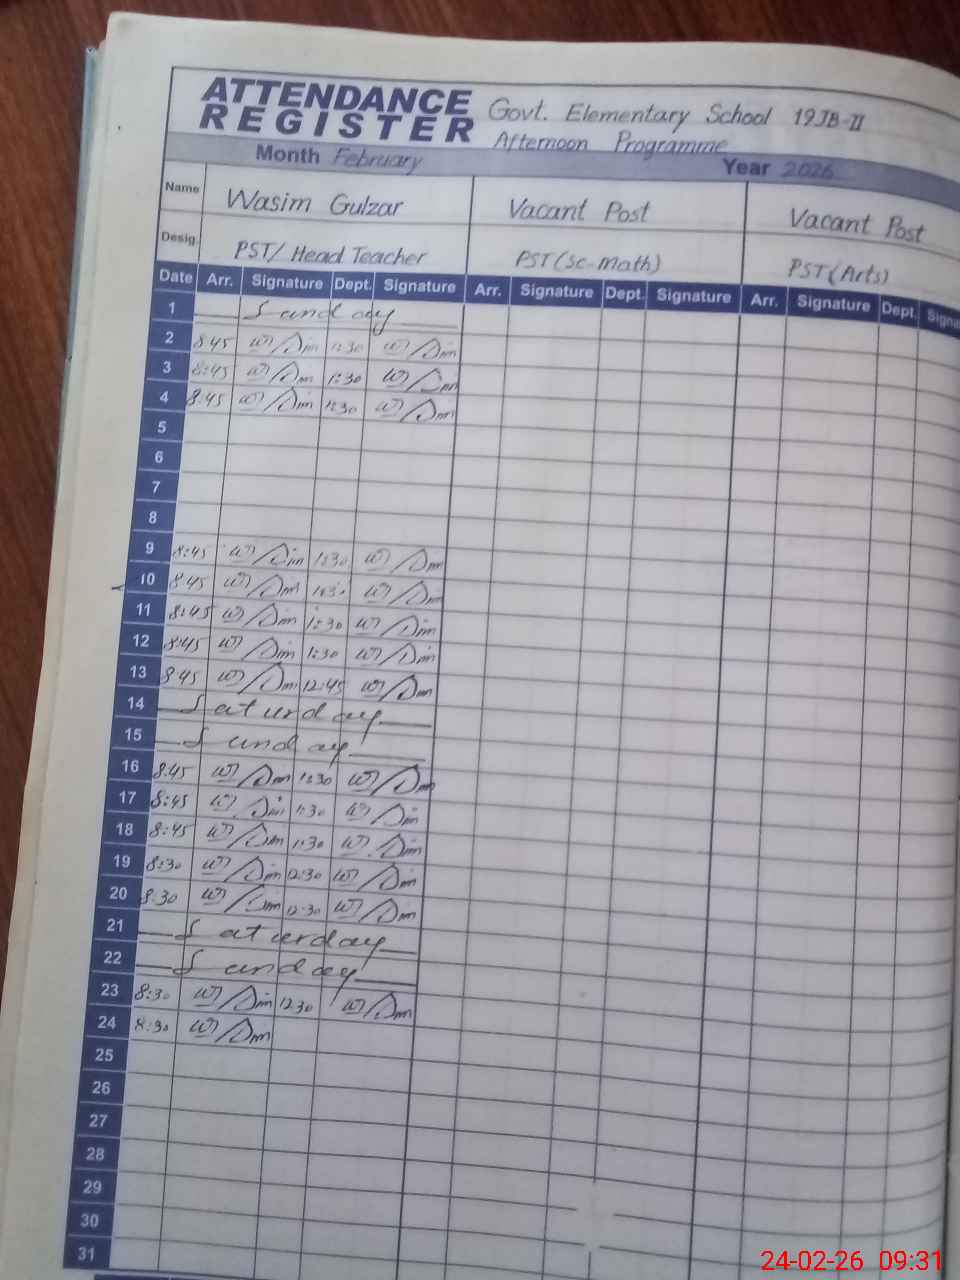 ATTENDANCE REGISTER
Govt. Elementary School 19JB-II
Afternoon Programme
Month February Year 2026
Name Wasim Gulzar Vacant Post Vacant Post
Desig. PST/Head Teacher PST(Sc-Math) PST(Arts)
Date Arr. Signature Dept. Signature Arr. Signature Dept. Signature Arr. Signature Dept.
1 Sunday
2 8:45 1:30
3 8:45 1:30
4 8:45 1:30
5
6
7
8
9 8:45 1:30
10 8:45 1:30
11 8:45 1:30
12 8:45 1:30
13 8:45 12:45
14 Saturday
15 Sunday
16 8:45 1:30
17 8:45 1:30
18 8:45 1:30
19 8:30 12:30
20 8:30 12:30
21 Saturday
22 Sunday
23 8:30 12:30
24 8:30
25
26
27
28
29
30
31
24-02-26 09:31